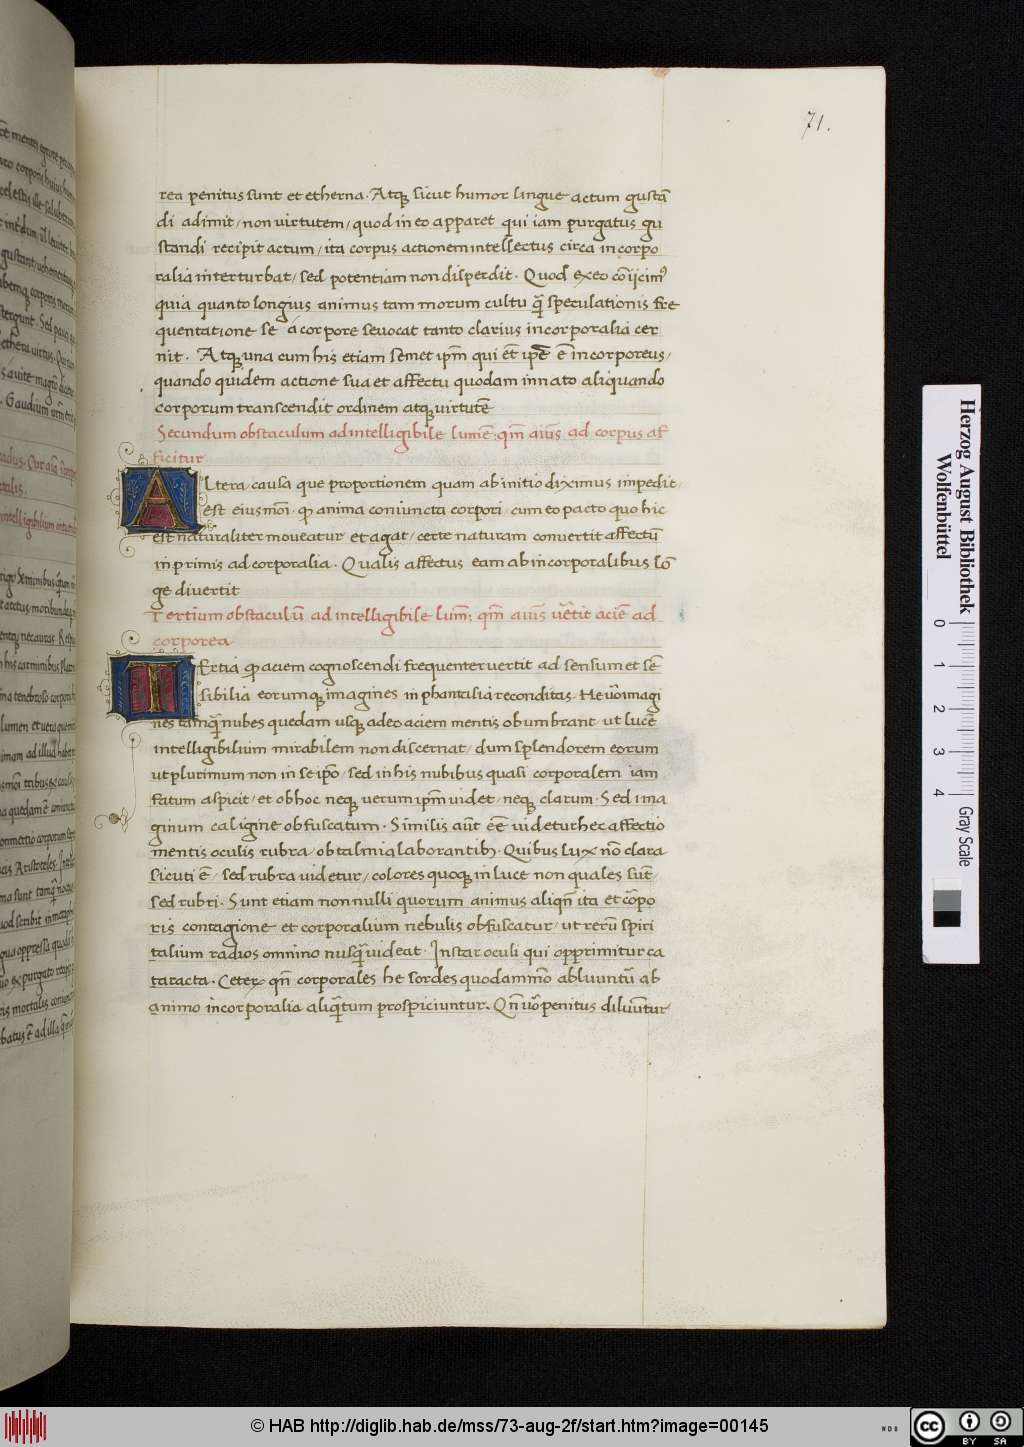 71.
rea penitus sunt et etherna. Atqꝫ sicut humor lingue actum gustā
di adimit / non virtutem / quod in eo apparet qui iam purgatus gu
standi recipit actum / ita corpus actionem intellectus circa incorpo
ralia interturbat / sed potentiam non disperdit. Quod ex eo cōiicimꝰ
quia quanto longius animus tam morum cultu q̄ꝫ speculationis fre
quentatione se a corpore sevocat tanto clarius incorporalia cer
nit. Atqꝫ una cum his etiam semet ip̄m qui ēt ip̄e ē incorporeus /
quando quidem actione sua et affectu quodam innato aliquando
corporum transcendit ordinem atqꝫ virtutē
Secundum obstaculum ad intelligibile lumē: qm̄ aīus ad corpus af
ficitur
Altera causa que proportionem quam ab initio diximus impedit /
est eiusmōi. ꝙ anima coniuncta corpori / cum eo pacto quo hic
est naturaliter moveatur et agat / certe naturam convertit affectū
in primis ad corporalia. Qualis affectus eam ab incorporalibus lō
ge divertit
Tertium obstaculū ad intelligibile lum̄: qm̄ aīus v̄tit aciē ad
corporea
TErtia ꝙ aciem cognoscendi frequenter vertit ad sensum et sē
sibilia eorumqꝫ imagines in phantasia reconditas. He v̄o imagi
nes tamq̄ꝫ nubes quedam usqꝫ adeo aciem mentis obumbrant / ut lucē
intelligibilium mirabilem non discernat / dum splendorem eorum
ut plurimum non in se ip̄o / sed in his nubibus quasi corporalem iam
fatum aspicit / et ob hoc neqꝫ verum ip̄m videt / neqꝫ clarum. Sed ima
ginum caligine obfuscatum. Similis aūt eē videtur hec affectio
mentis oculis rubra obtalmia laborantibꝫ. Quibus lux nō clara
sicuti ē / sed rubra videtur / colores quoqꝫ in luce non quales sūt /
sed rubri. Sunt etiam non nulli quorum animus aliqn̄ ita et corpo
ris contagione et corporalium nebulis obfuscatur / ut rerū spiri
talium radios omnino nusq̄ꝫ videat. Instar oculi qui opprimitur ca
taracta. Ceterꝫ qn̄ corporales he sordes quodammō abluuntur ab
animo incorporalia aliq̄ꝫtum prospiciuntur. Qn̄ v̄o penitus diluūtur
Herzog August Bibliothek
Wolfenbüttel
0 1 2 3 4
Gray Scale
© HAB http://diglib.hab.de/mss/73-aug-2f/start.htm?image=00145
WDB
cc BY SA